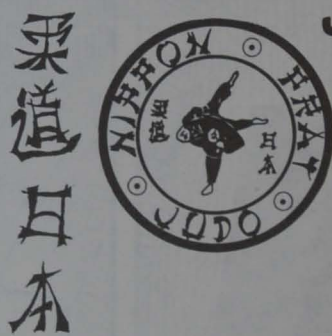 柔道日本
NIPPON PRAT
JUDO
日本